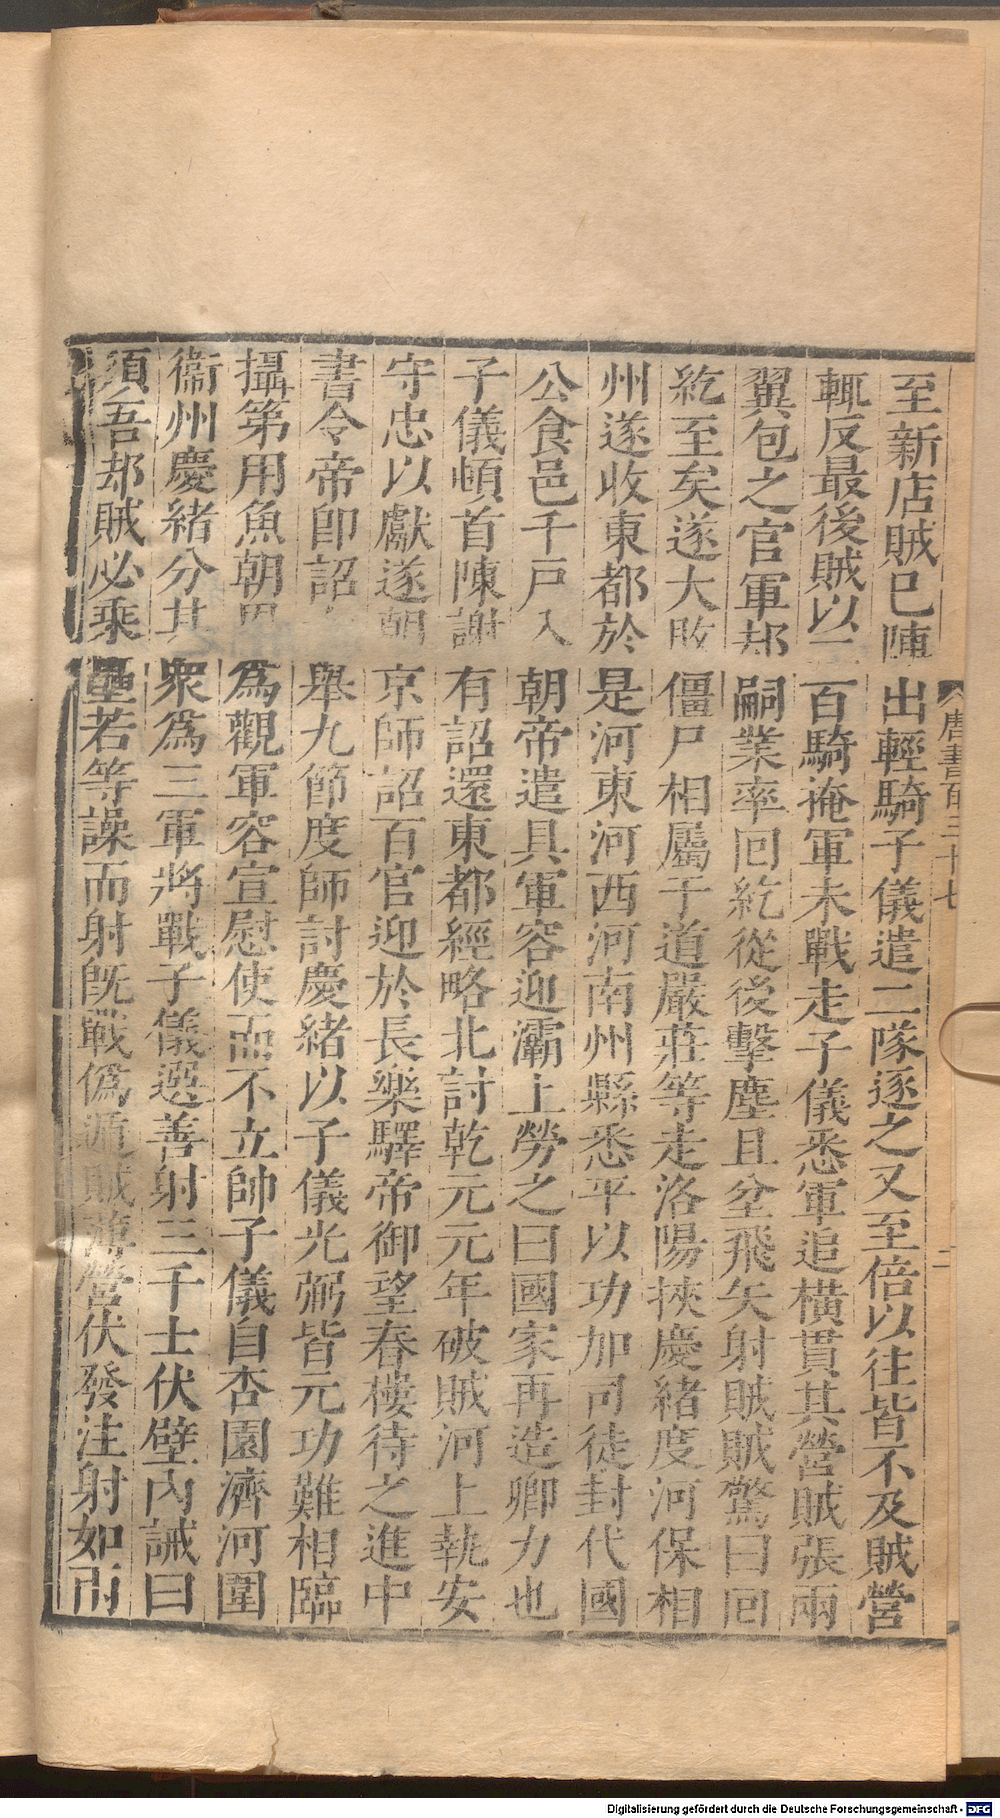 至新店賊已陣出輕騎子儀遣二隊逐之又至倍以往皆不及賊營
輒反最後賊以二百騎掩軍未戰走子儀悉軍追橫貫其營賊張兩
翼包之官軍却嗣業率回紇從後擊塵且坌飛矢射賊賊驚曰回
紇至矣遂大敗僵尸相屬于道嚴莊等走洛陽挾慶緒度河保相
州遂收東都於是河東河西河南州縣悉平以功加司徒封代國
公食邑千戸入朝帝遣具軍容迎灞上勞之曰國家再造卿力也
子儀頓首陳謝有詔還東都經略北討乾元元年破賊河上執安
守忠以獻遂朝京師詔百官迎於長樂驛帝御望春樓待之進中
書令帝即詔舉九節度師討慶緒以子儀光弼皆元功難相臨
攝第用魚朝恩爲觀軍容宣慰使而不立帥子儀自杏園濟河圍
衞州慶緒分其衆爲三軍將戰子儀選善射三千士伏壁內誡曰
須吾却賊必乘壘若等譟而射旣戰偽遁賊薄營伏發注射如雨
唐書百三十七
二
Digitalisierung gefördert durch die Deutsche Forschungsgemeinschaft - DFG